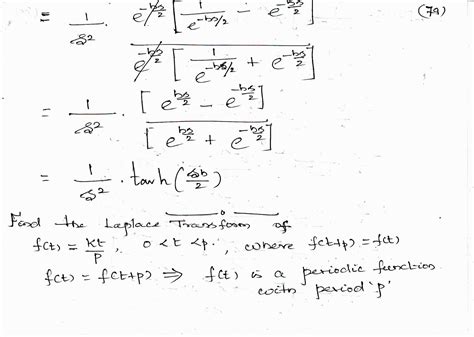 = 1/s² · e^(-bs/2) [ 1/e^(-bs/2) - e^(-bs/2) ] / e^(-bs/2) [ 1/e^(-bs/2) + e^(-bs/2) ] (79)
= 1/s² · [ e^(bs/2) - e^(-bs/2) ] / [ e^(bs/2) + e^(-bs/2) ]
= 1/s² · tanh (sb/2)
Find the Laplace Transform of
f(t) = Kt/p, 0<t<p., where f(t+p) = f(t)
f(t) = f(t+p) ⇒ f(t) is a periodic function
with period 'p'